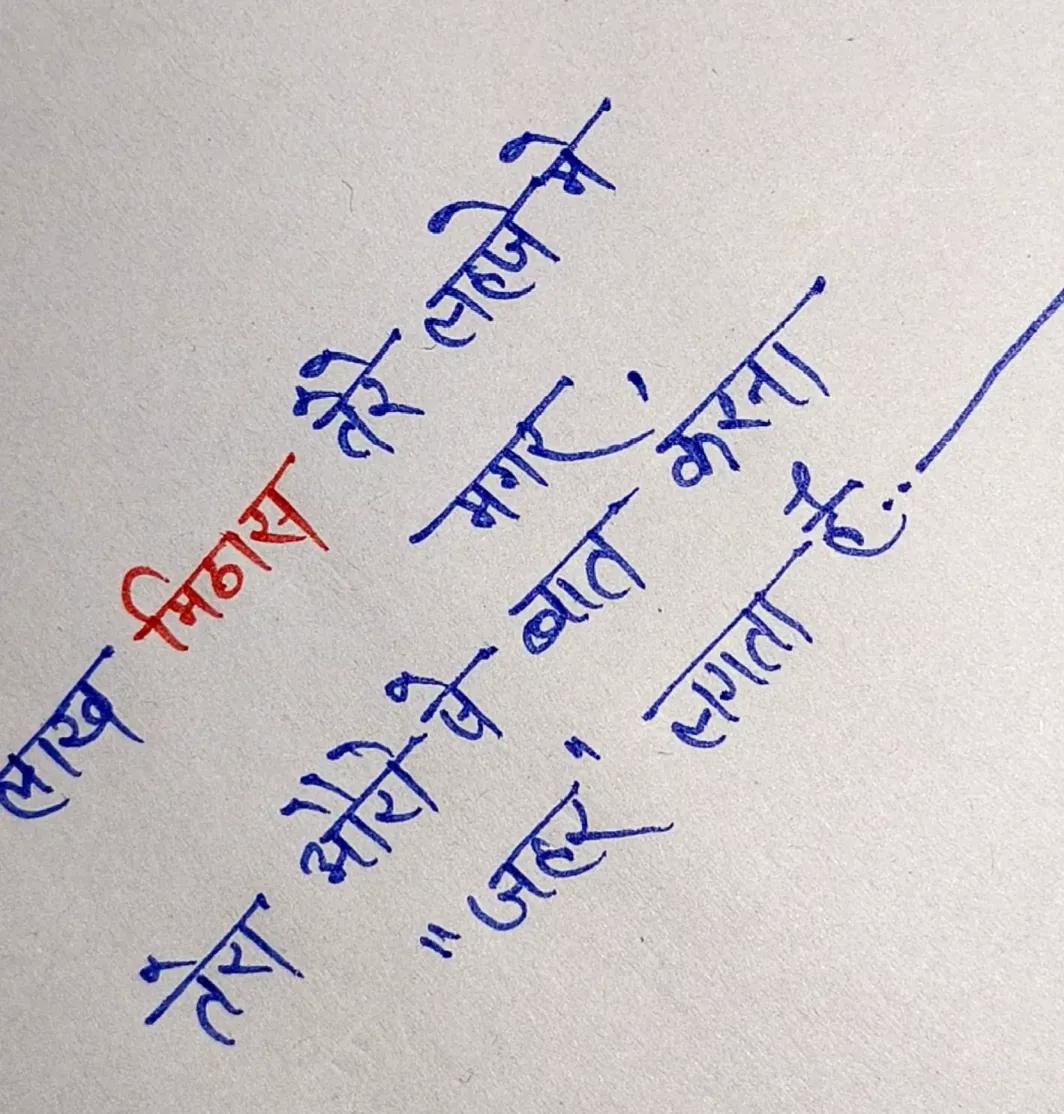 लाख मिठास तेरे लहजे मे
मगर,
तेरा औरो से बात करना
"जहर" लगता है..